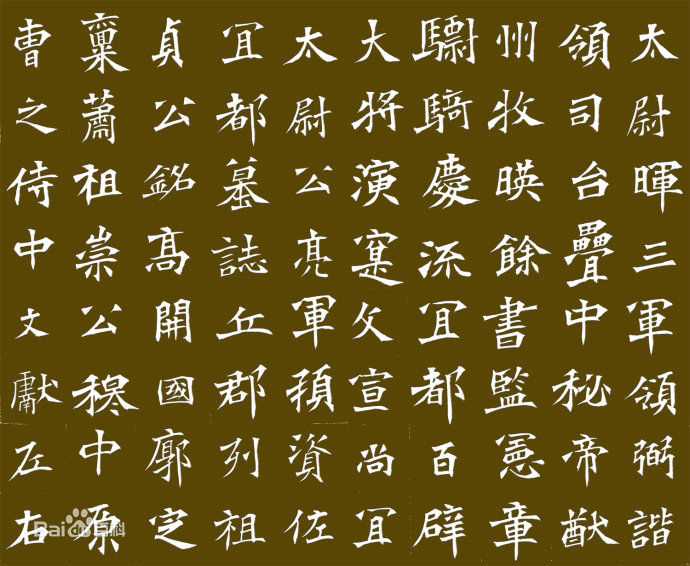 太尉暉三軍領弼諧
領司台疊中秘帝猷
州牧暎餘書監憲章
驃騎慶流冝都百辟
大將演寔父宣尚冝
太尉公亮軍頵資佐
冝都墓誌丘郡列祖
貞公銘髙開國廓定
稟蕭祖崇公穆中原
曹之侍中文獻左右
Bai百科